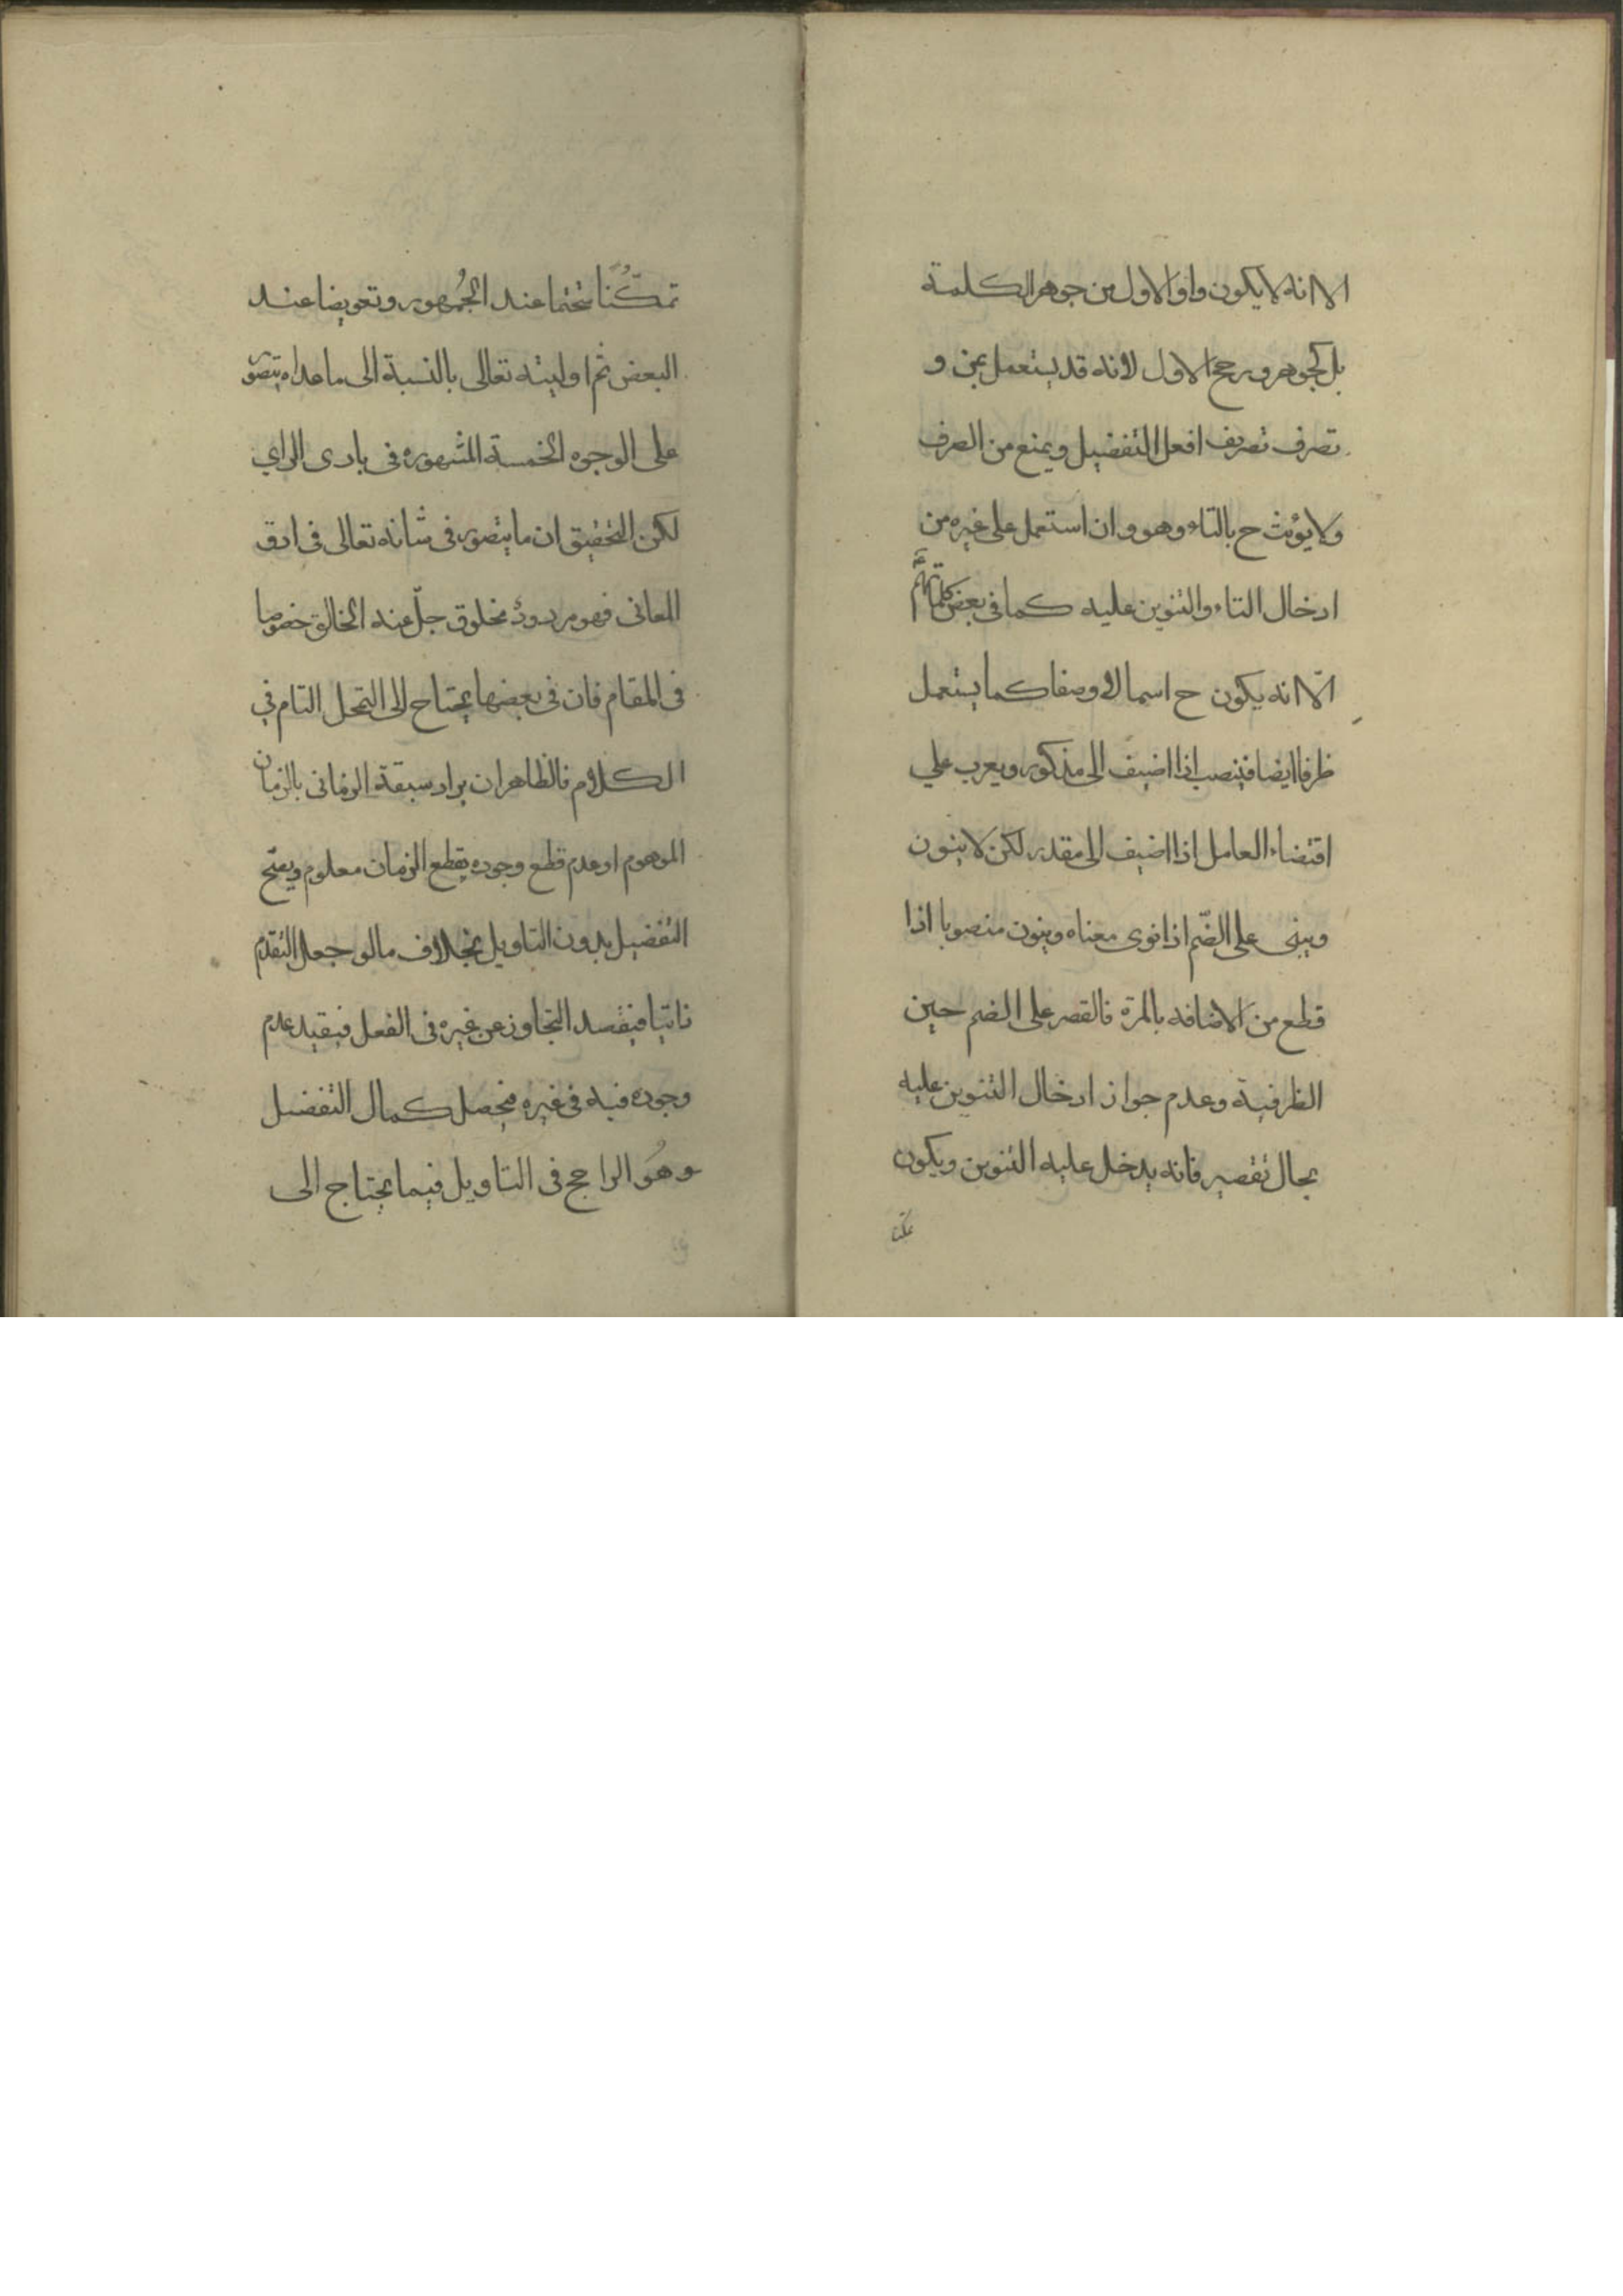 الا انه لا يكون واو الاول من جوهر الكلمة
بل كجوهر ورجح الاول لانه قد يستعمل بمن و
تصرف تصريف افعل التفضيل ويمنع من الصرف
ولا يؤنث ح بالتاء وهو وان استعمل على غيره من
ادخال التاء والتنوين عليه كما فى بعض كلماتهم
الّا انه يكون ح اسما لا وصفا كما يستعمل
ظرفا ايضا فينصب اذا اضيف الى مذكور ويعرب على
اقتضاء العامل اذا اضيف الى مقدر لكن لا ينون
ويبنى على الضّم اذا نوى معناه وينون منصوبا اذا
قطع من الاضافه بالمرة فالقصر على الضم حين
الظرفية وعدم جواز ادخال التنوين عليه
بحال تقصير فانه يدخل عليه التنوين ويكون
تمكّنا
تمكّنا متحتما عند الجُمهور وتعويضا عند
البعض ثم اوليته تعالى بالنسبة الى ما عداه يتصور
على الوجوه الخمسة المشهوره فى بادى الراي
لكن التحقيق ان ما يتصور فى شانه تعالى فى ادق
المعانى فهو مردودٌ مخلوق جلّ عنه الخالق خصوصا
فى المقام فان فى بعضها يحتاج الى التمحل التام في
الكلام فالظاهر ان يراد سبقة الزمانى بالزمان
الموهوم اذ عدم قطع وجوده بقطع الزمان معلوم ويصح
التفضيل بدون التاويل بخلاف ما لو جعل التقدم
ذاتيا فيفسد التجاوز عن غيره فى الفعل فيقيد عدم
وجوده فيه فى غيره فيحصل كمال التفضيل
وهُو الراجح فى التاويل فيما يحتاج الى